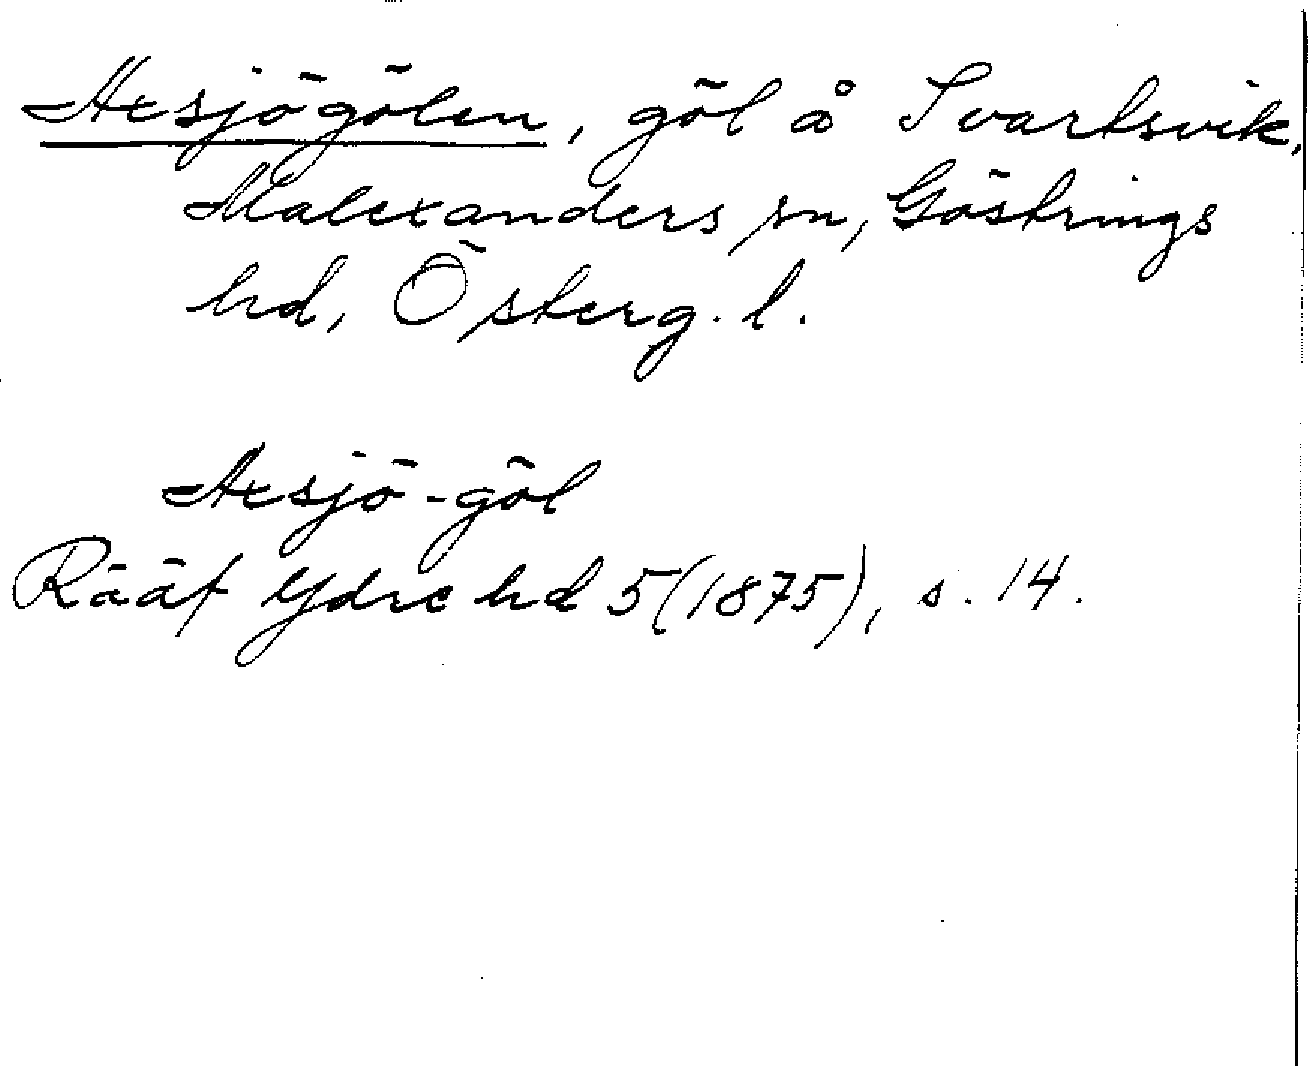 Axsjögölen, göl å Svartsvik,
Malexanders sn, Göstrings
hd, Österg. l.
Axsjö-göl
Rääf Ydre hd 5 (1875), s. 14.